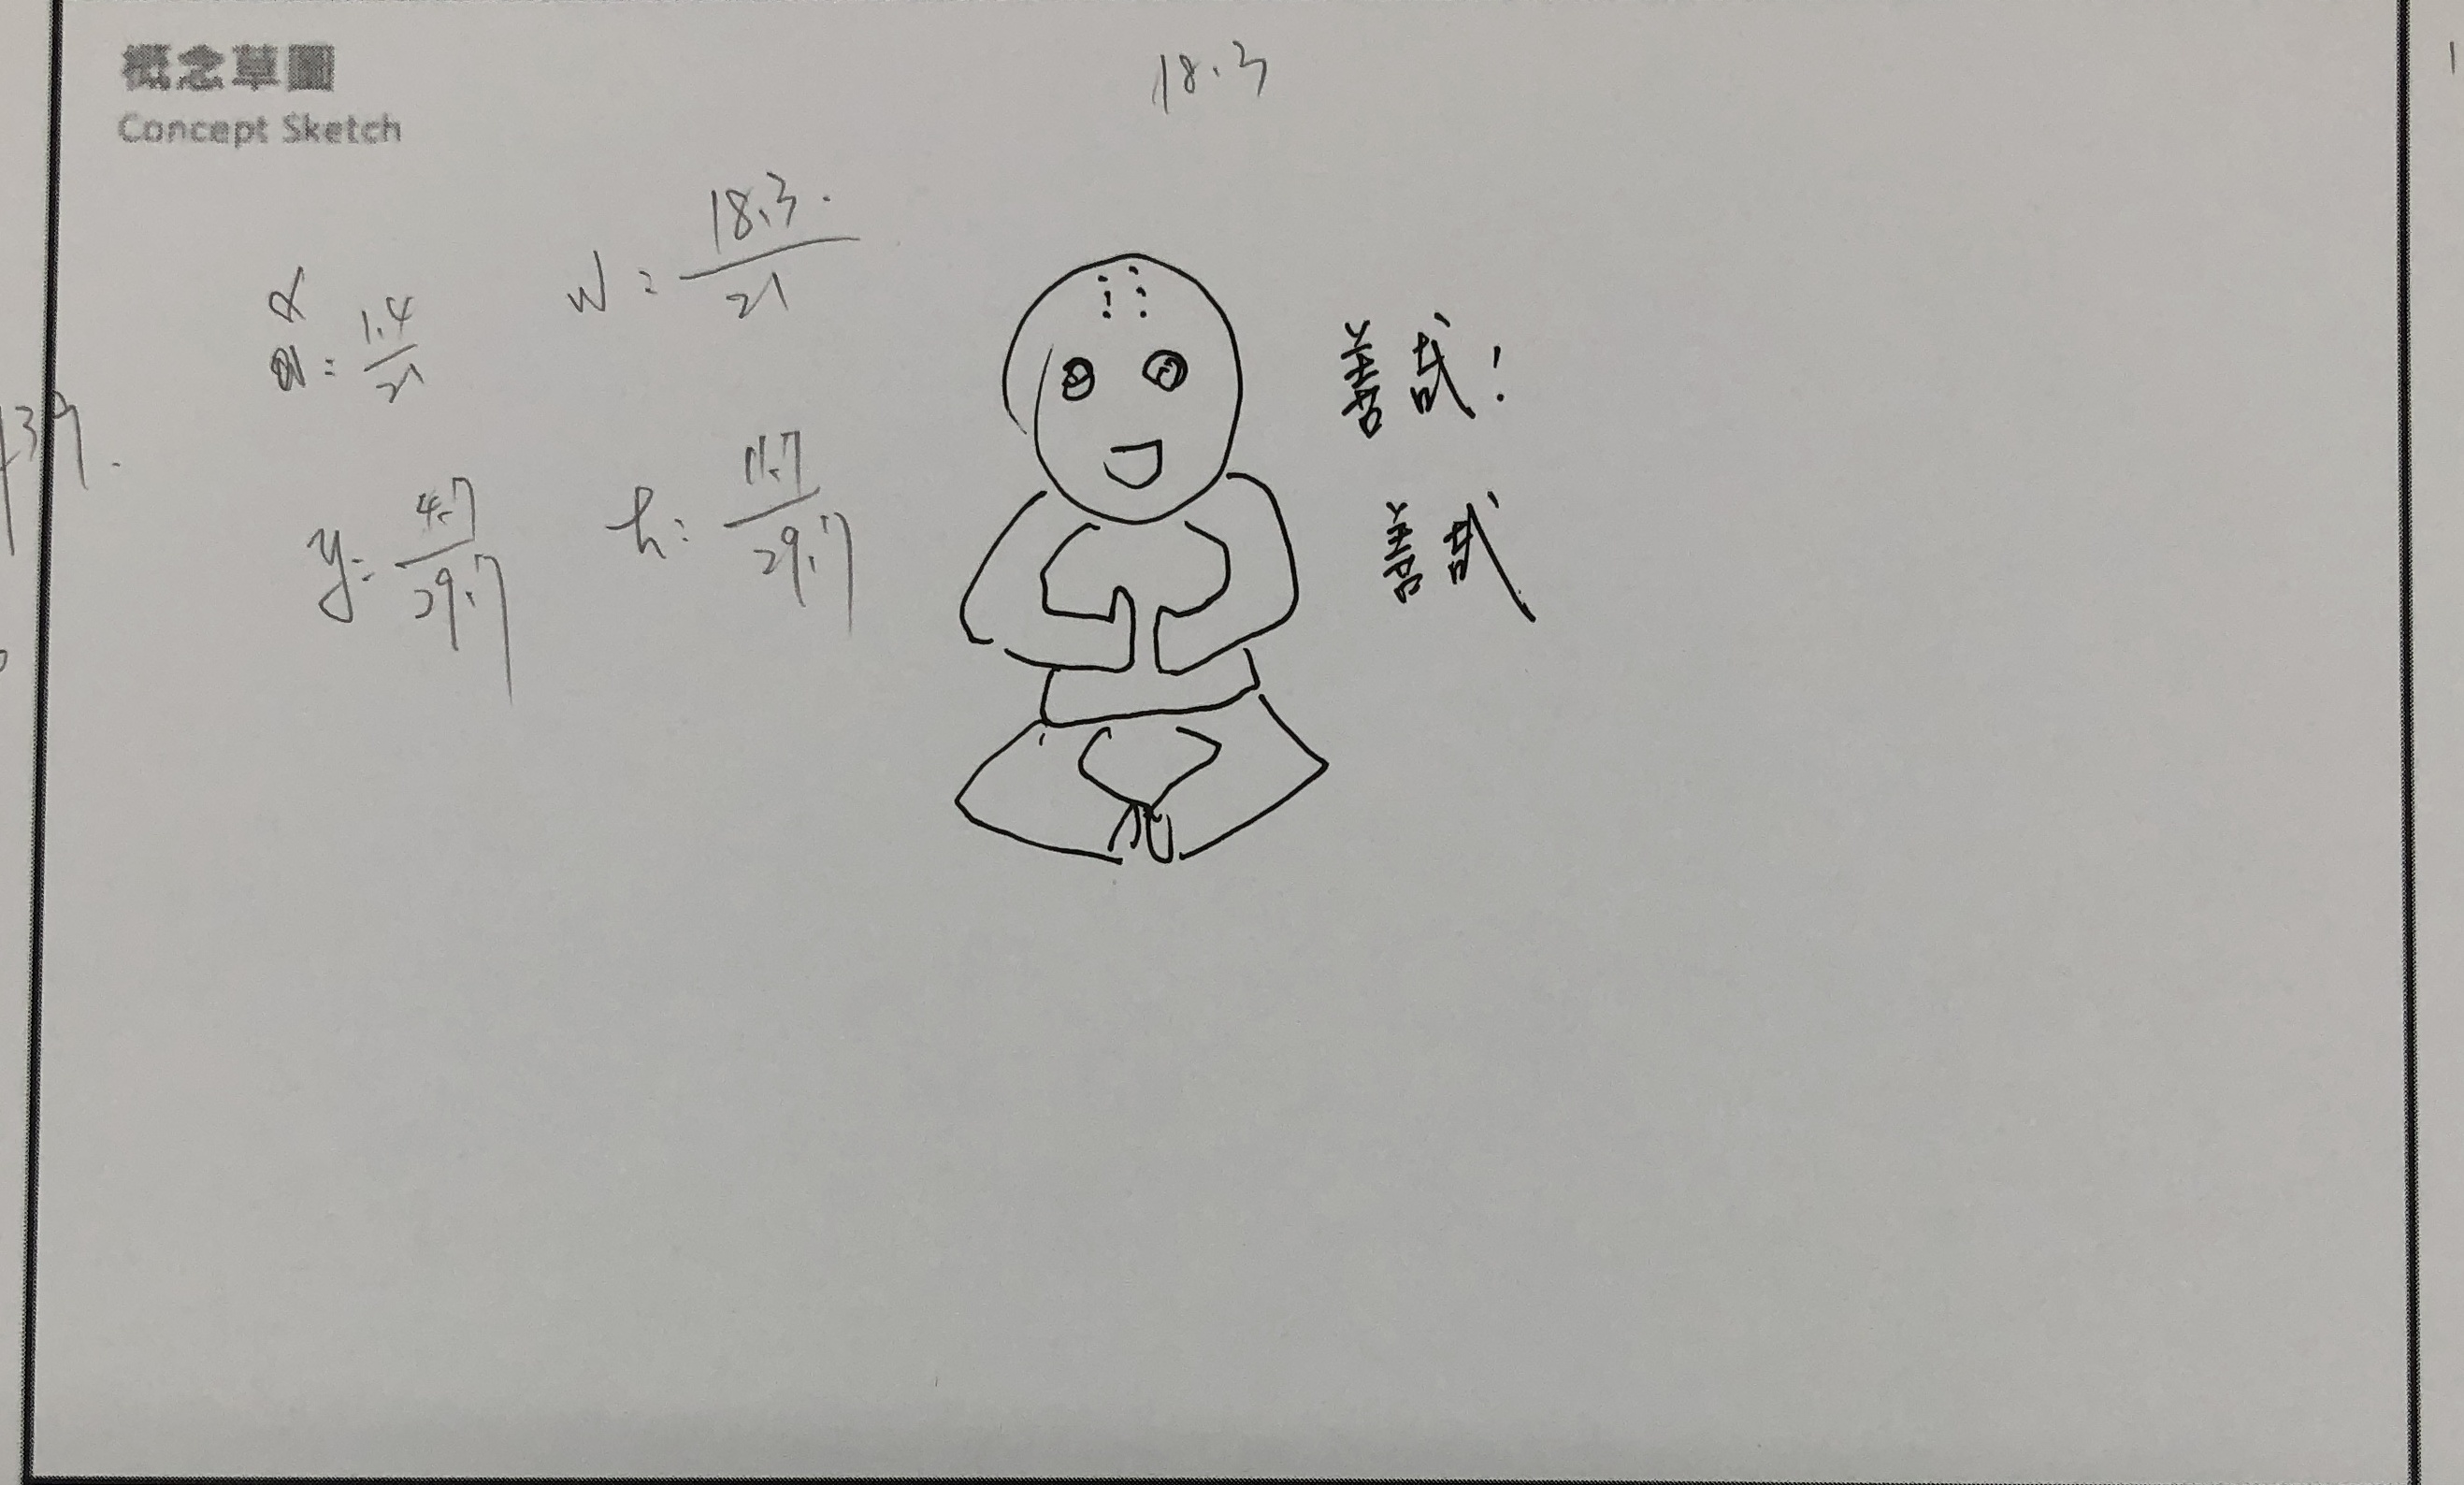 概念草圖
Concept Sketch
18.3
x = 1.4/21
w = 18.3/21
y = 4.7/29.7
h = 11.7/29.7
善哉!
善哉